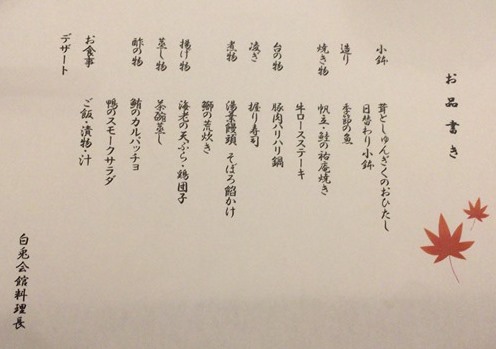 お品書き
小鉢 茸としゅんぎくのおひたし
日替わり小鉢
造り 季節の魚
焼き物 帆立・鮭の祐庵焼き
牛ロースステーキ
台の物 豚肉パリパリ鍋
凌ぎ 握り寿司
煮物 湯葉饅頭 そぼろ餡かけ
鰤の荒炊き
揚げ物 海老の天ぷら・鶏団子
蒸し物 茶碗蒸し
酢の物 鮪のカルパッチョ
鴨のスモークサラダ
お食事 ご飯・漬物・汁
デザート
白兎会館料理長